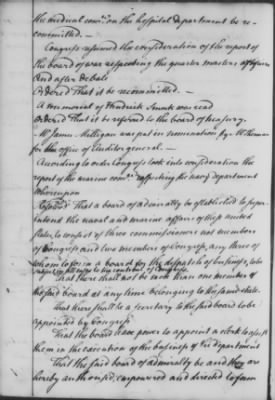 the medical comee. on the hospital department be re-
committed. —
Congress resumed the consideration of the report of
the board of war respecting the quarter masters
And after debate
Ordered That it be recommitted. —
A memorial of Fredrick was read
Ordered That it be referred to the board of treasury. —
Mr James Milligan was put in nomination by Mr
for the office of Auditor general. —
According to order Congress took into consideration the
report of the marine comee. respecting the navy department
Whereupon
Resolved That a board of admiralty be established to super-
intend the naval and marine affairs of these united
states, to consist of three commissioners not members
of Congress and two members of Congress, any three of
whom to form a board for the dispatch of business, to be
subject in all cases to the controul of Congress.
That there shall not be more than one member of
the said board at any time belonging to the same state.
That there shall be a secretary to the said board to be
appointed by Congress
That the board have power to appoint a clerk to assist
them in the execution of the business of the department
That the said board of admiralty be and they are
hereby authorised, empowered and directed to form